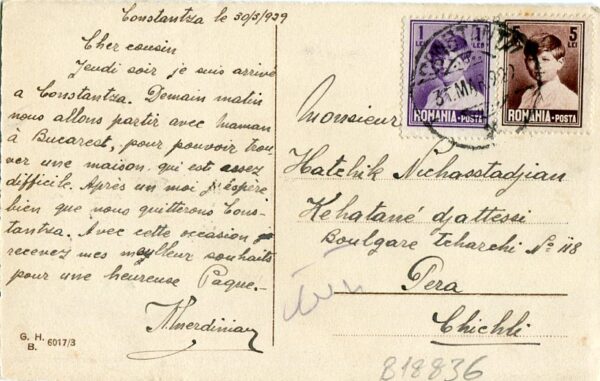 Constantza le 30/3/929
Cher cousin
Jeudi soir je suis arrivé
a Constantza. Demain matin
nous allons partir avec maman
à Bucarest, pour pouvoir trou-
ver une maison, qui est assez
difficile. Après un moi j'espère
bien que nous quitterons Cons-
tantza. Avec cette occasion
recevez mes meylleur souhaits
pour une heureuse Paque.-
G. H.
B. 6017/3
1 LEI
ROMANIA-POSTA
5 LEI
ROMANIA-POSTA
CONSTANTA
31. MAR 929
Monsieur
Hatchik Nichasstadjian
Kehatané djattessi
Boulgare tcharchi № 118
Pera
Chichli
818836